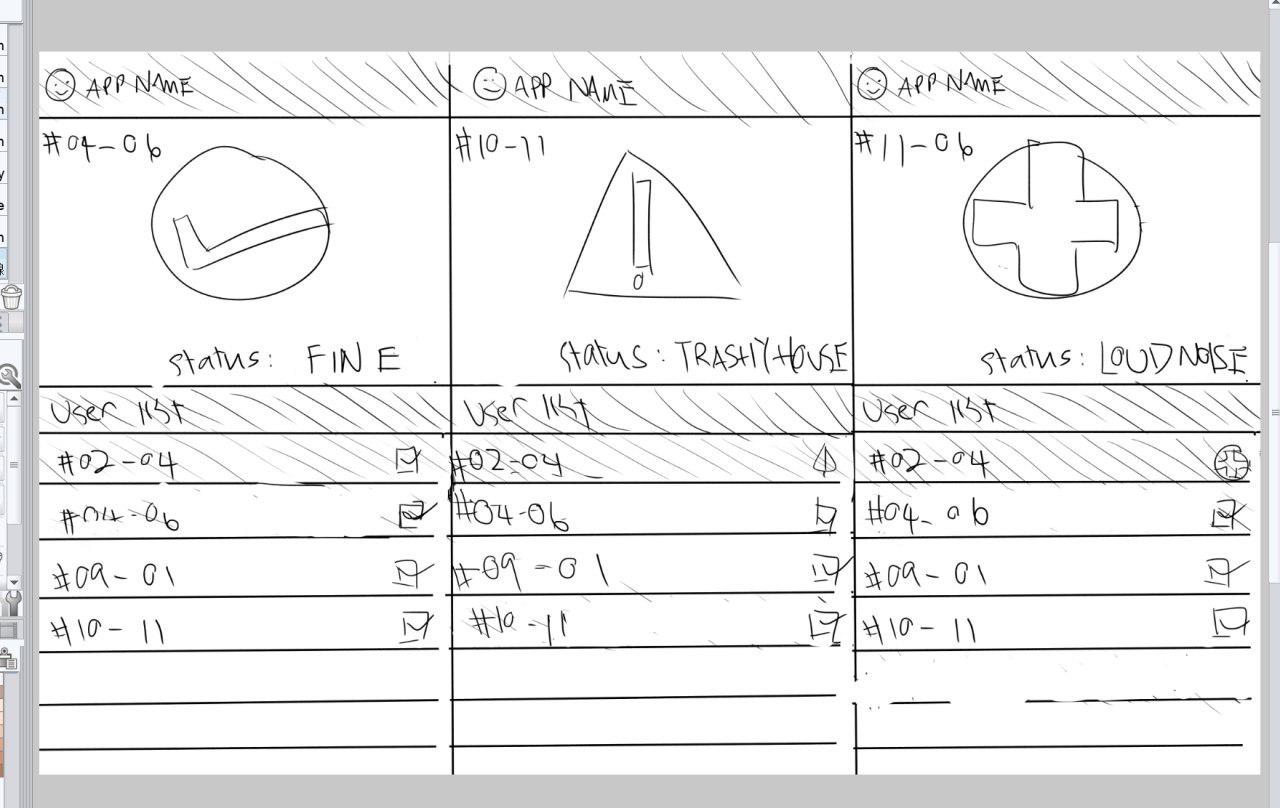 APP NAME
#04-06
status: FINE
User list
#02-04
#04-06
#09-01
#10-11
APP NAME
#10-11
status: TRASHY HOUSE
User list
#02-04
#04-06
#09-01
#10-11
APP NAME
#11-06
status: LOUD NOISE
User list
#02-04
#04-06
#09-01
#10-11